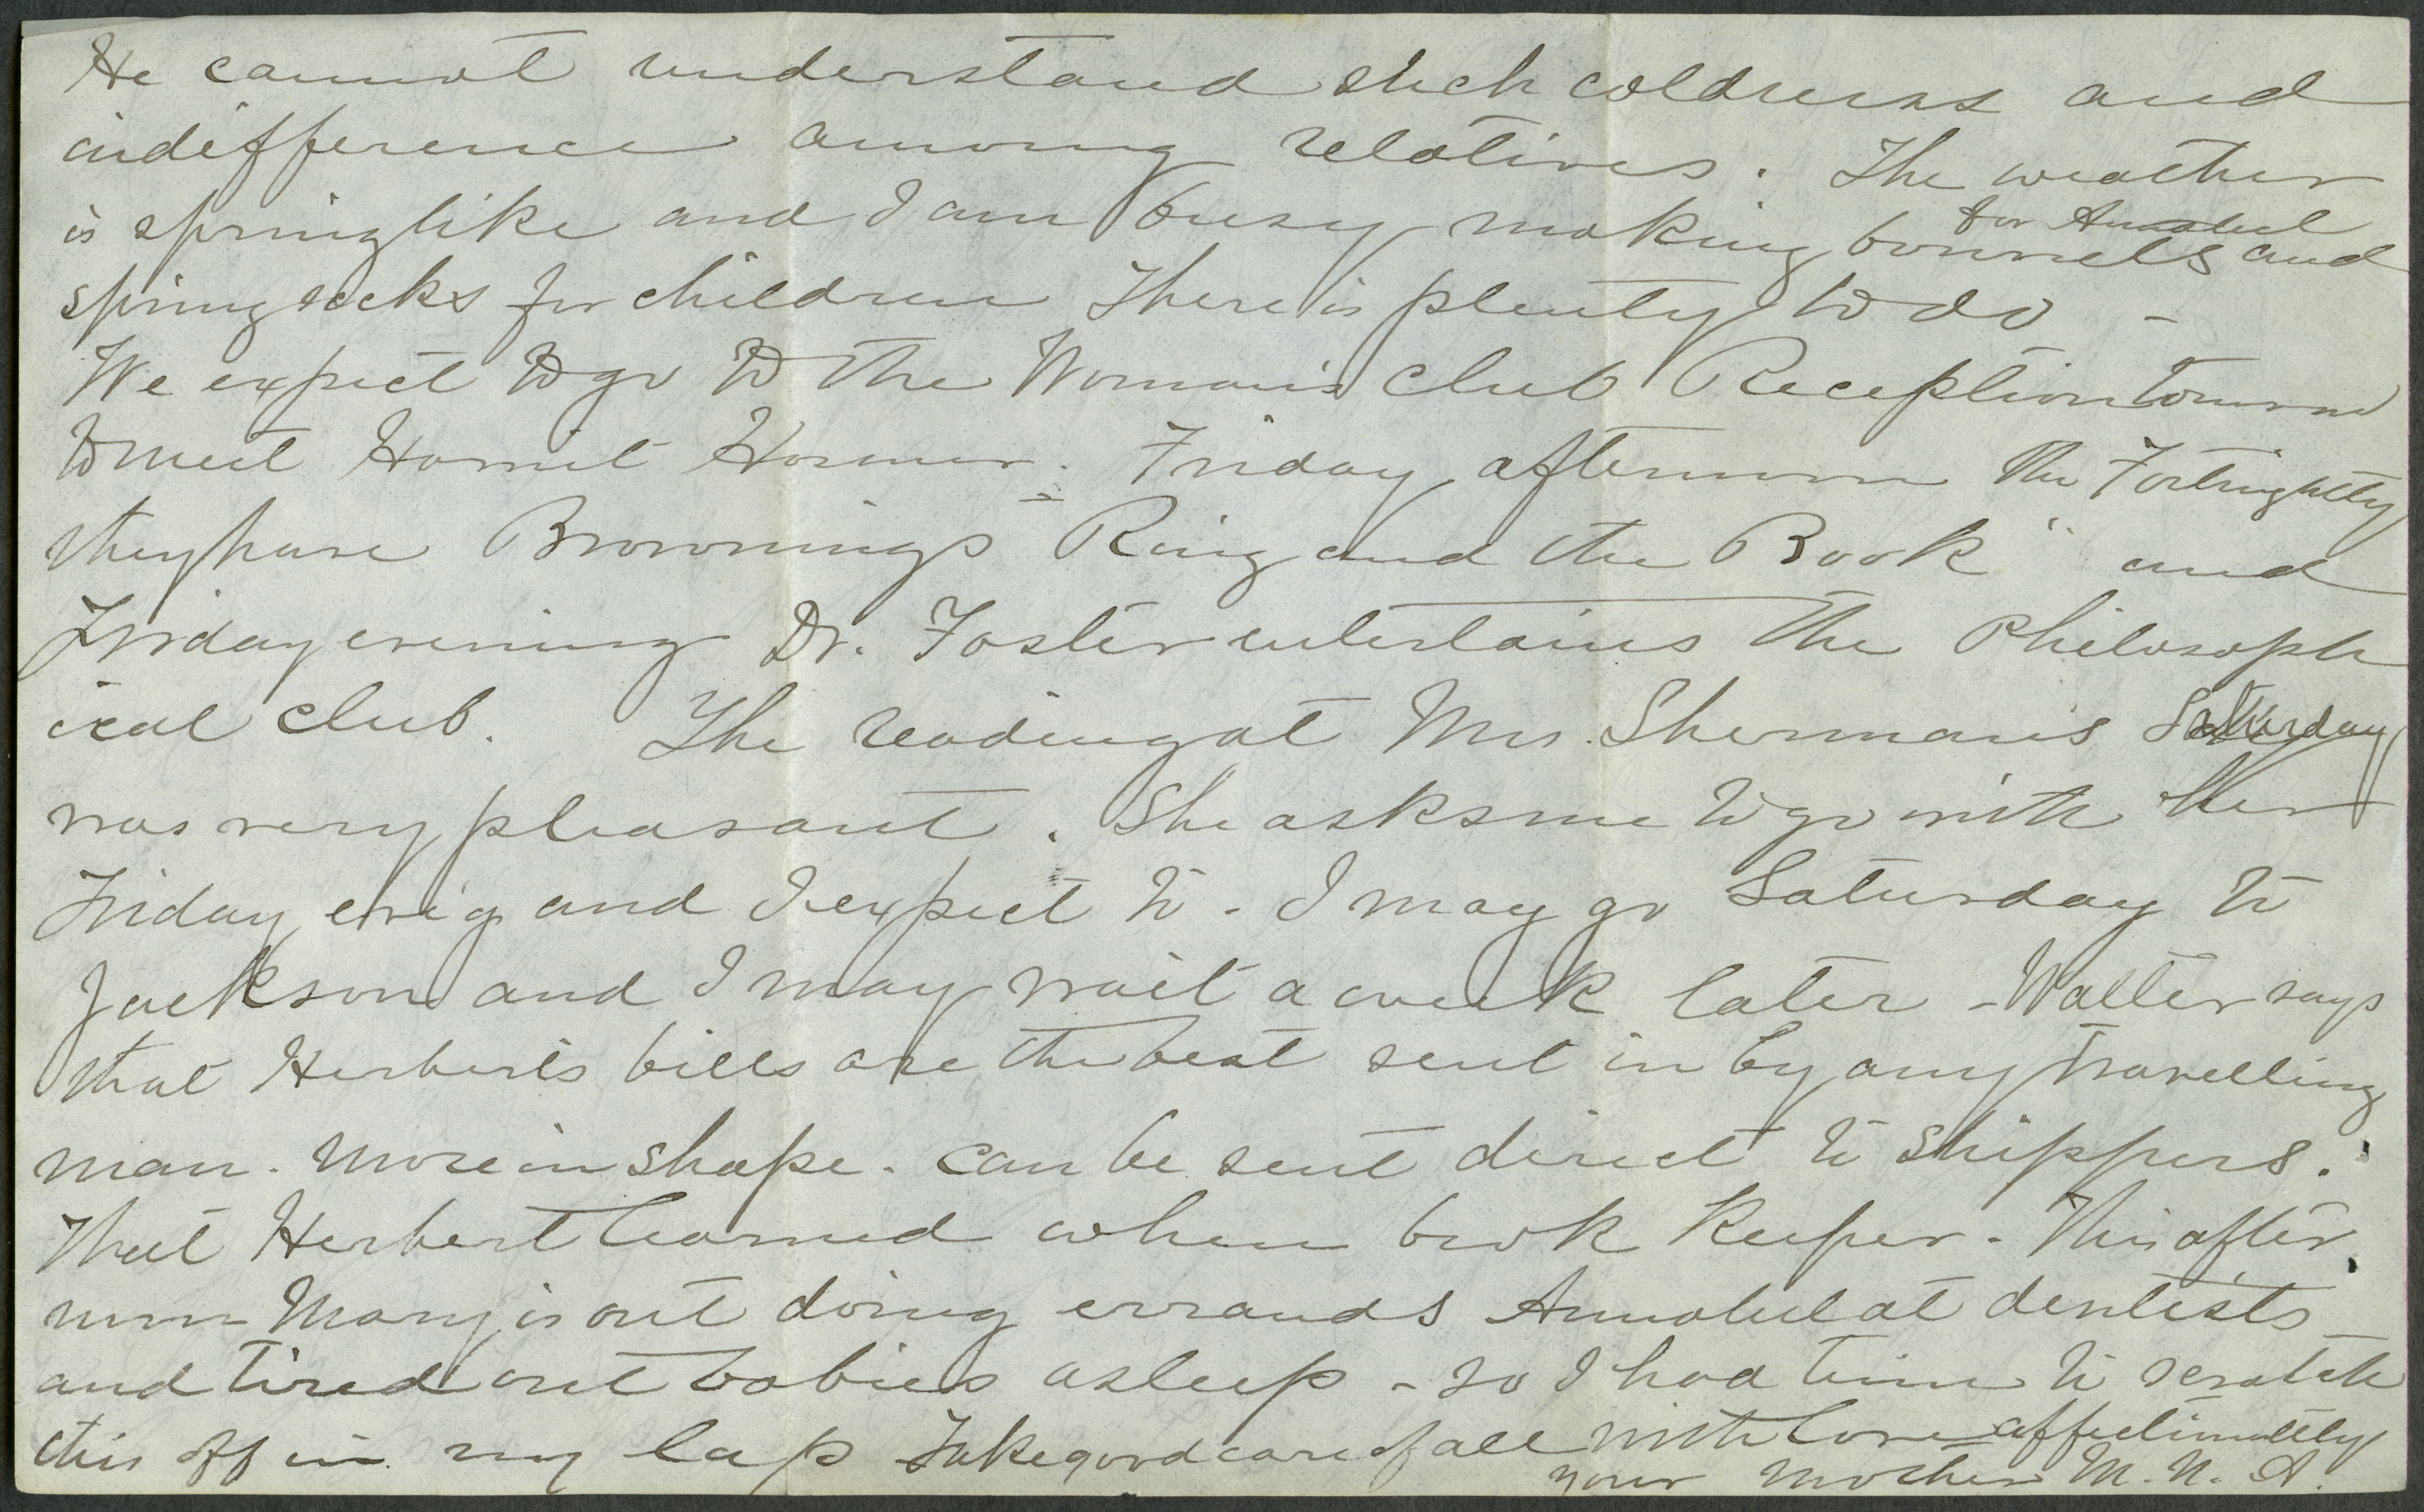 He cannot understand such coldness and
indifference among relatives. The weather
for Annabel
is springlike and I am busy making bonnets and
spring sacks for children There is plenty to do -
We expect to go to the Woman's Club Reception tomorrow
to meet Harriet Hosmer. Friday afternoon the Fortnightly
they have Browning's "Ring and the Book" and
Friday evening Dr. Foster entertains the Philosoph
ical club. The reading at Mrs. Sherman's Saturday
was very pleasant. She asks me to go with her
Friday ev'ig and I expect to - I may go Saturday to
Jackson and I may wait a week later - Walter says
that Herbert's bills are the best sent in by any travelling
man. More in shape. Can be sent direct to shippers.
That Herbert learned when book keeper - This after
noon Mary is out doing errands Annabel at dentists
and tired out babies asleep - so I had time to scratch
this off in my lap Take good care of all with love affectionately
your mother M. N. A.